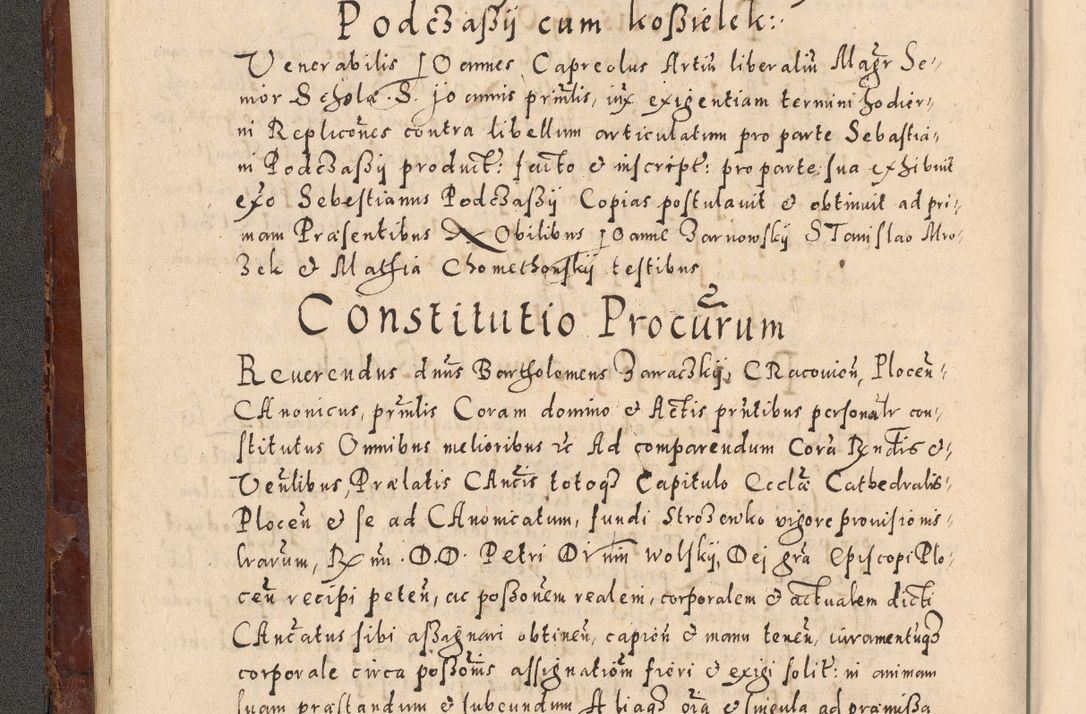 Podczassÿ cum kossielek:
Venerabilis Joannes Capreolus Artiũ liberaliũ Magr̃ Se-
nior Scholæ S. Joannis prñtis, iux exigentiam termini hodier-
ni Replicões contra libellum articulatum pro parte Sebastia-
ni Podczassÿ product: facto et inscript: pro parte sua exhibuit
exõ Sebestianus Podczassÿ Copias postulavit et obtinuit ad pri-
mam Præsentibus Nobilibus Joanne Zarnowskÿ STanislao Mro-
zek et Mathia Chomethowskÿ testibus
Constitutio Procũrum
Reverendus dñus Bartholomeus Zaraczkÿ, CRacovieñ,Ploceñ-
CAnonicus, prñtis Coram domino et Actis prñtibus personalr con-
stitutus Omnibus melioribus etc Ad comparendum Corã Rndis et-
Veñlibus, Prælatis CAnõcis totoq3 Capitulo Ecclã Cathedralis-
Ploceñ et se ad CAnonicatum, fundi Strozewko vigore provisionis-
lrarum, Rx mi D.D. Petri Dunin wolskÿ, Dei grã Episcopi Plo-
ceñ recipi peteñ, ac possonem realem, corporalem et actualem dicti
CAncatus sibi assagnari obtineñ, capieñ et manu teneñ, iuramentuq3
corporale circa possonis assignationem fieri et exigi solit: in animam
suam præstandum et subeundum Aliaq3 oĩa et singula ad præmissa